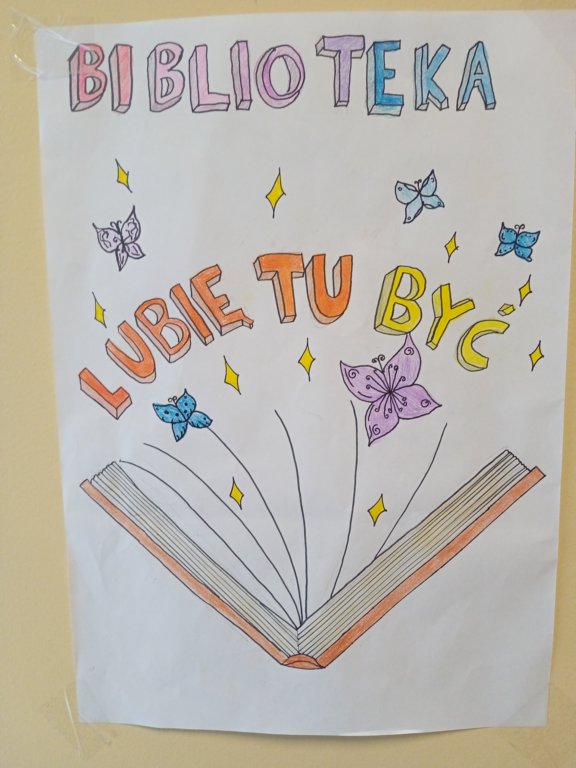 BIBLIOTEKA
LUBIĘ TU BYĆ